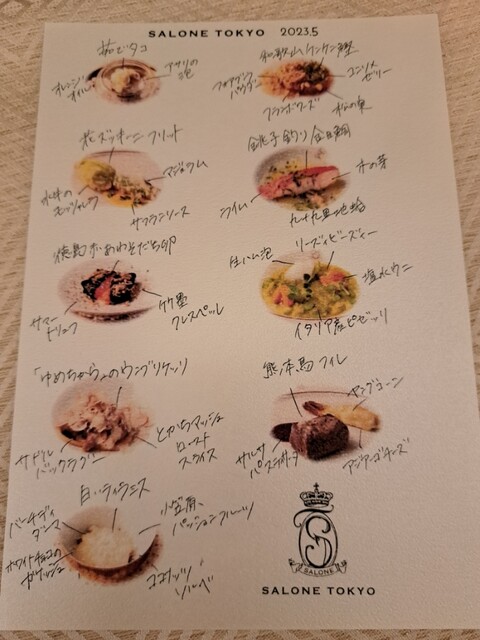 SALONE TOKYO 2023.5
茹でタコ
オレンジ
オイル
アサリの
泡
和歌山ケンケン鰹
フォアグラ
パウダー
コンソメ
ゼリー
フランボワーズ
松の実
花ズッキーニ フリット
水牛の
モッツァレラ
マジョラム
サフランソース
銚子釣り金目鯛
木の芽
ライム
九十九里地蛤
徳島 かあわそだち卵
サマー
トリュフ
竹墨
クレスペッレ
生ハム泡
リーズィビーズィー
塩水ウニ
イタリア産ピゼッリ
「ゆめちから」のウンブリケッリ
サドル
バックラグー
とかちマッシュ
ロースト
スライス
熊本馬フィレ
ヤングコーン
サルサ
アジアーゴチーズ
白いティラミス
バーチ・ディ
ダーマ
小笠原
パッションフルーツ
ホワイトチョコの
ガナッシュ
ココナッツ
ソルベ
SALONE
SALONE TOKYO